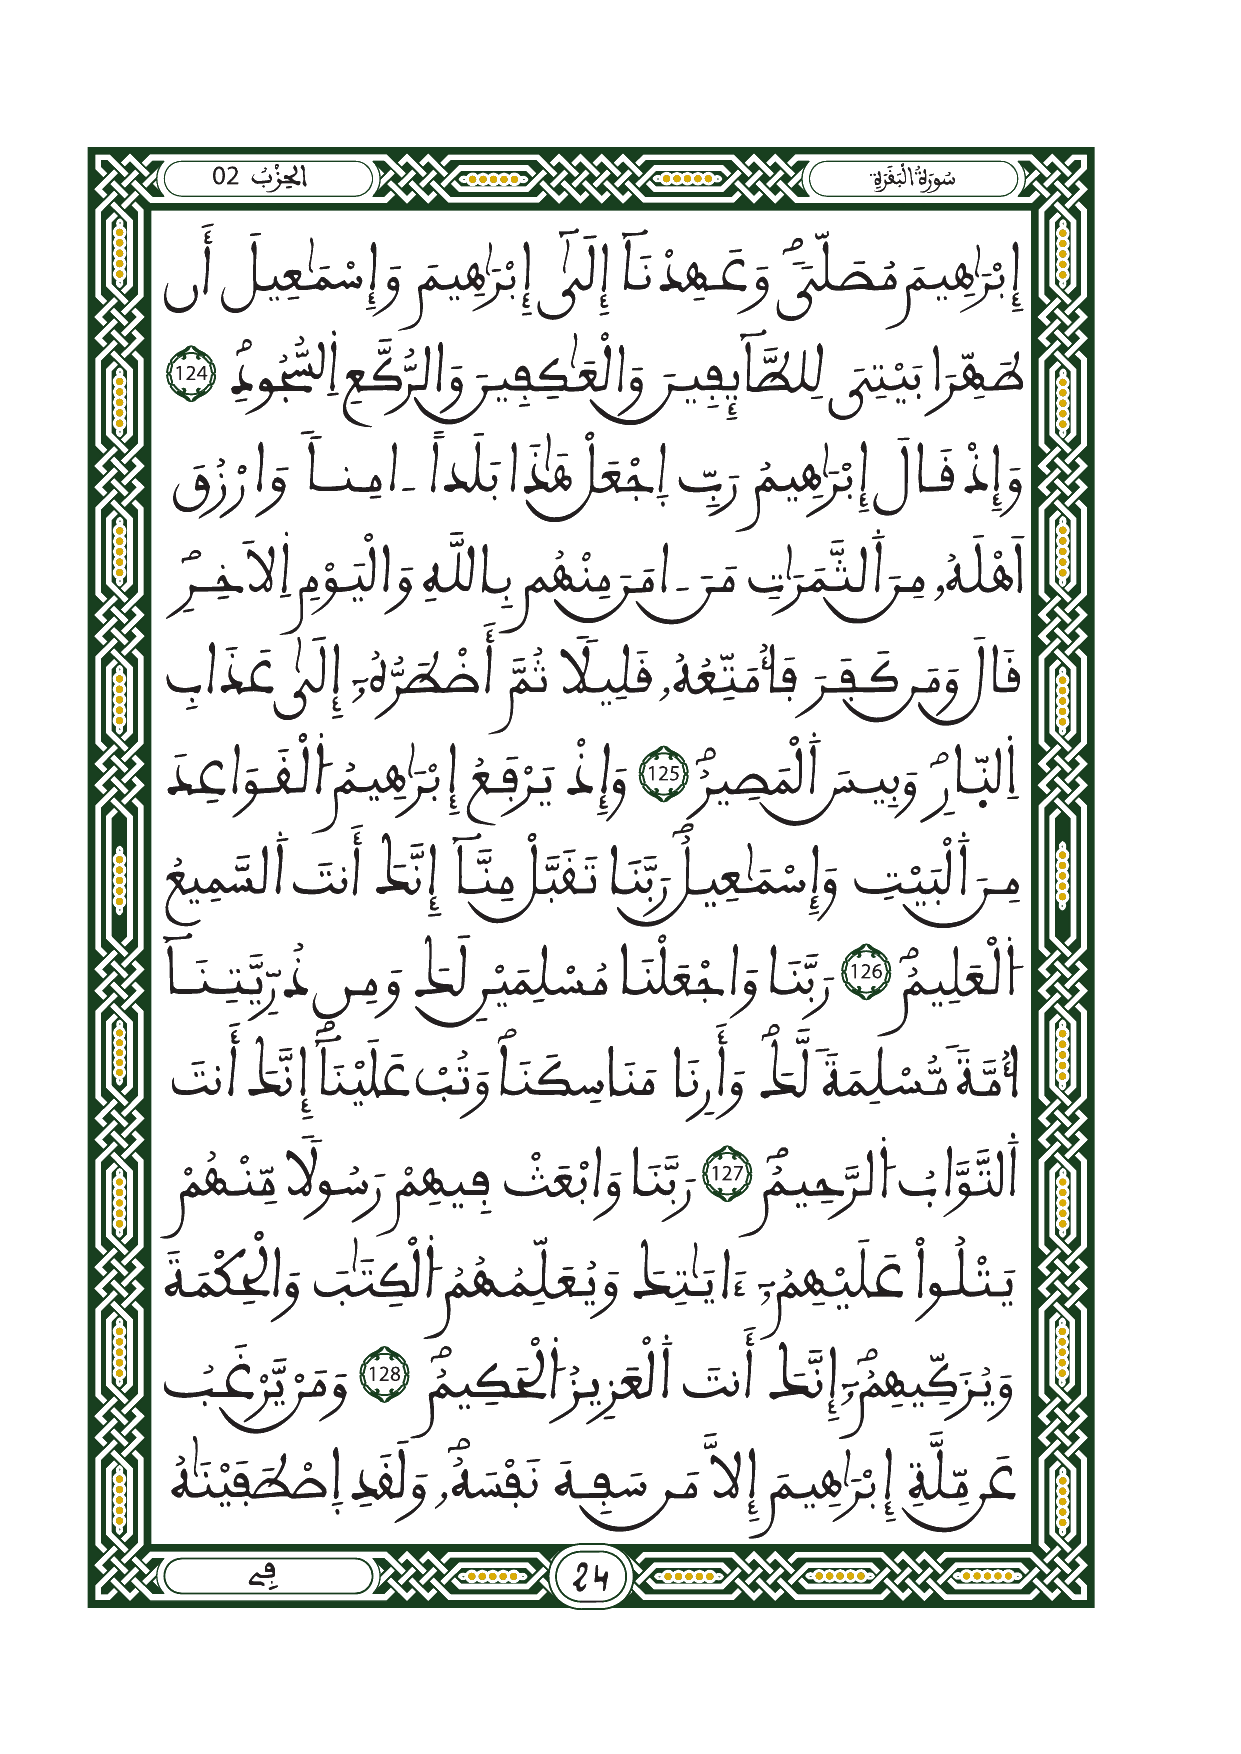 سُورَةُ الْبَقَرَةِ
الْحِزْبُ 02
إِبْرَٰهِيمَ مُصَلّىٗۖ وَعَهِدْنَآ إِلَىٰٓ إِبْرَٰهِيمَ وَإِسْمَٰعِيلَ أَن
طَهِّرَا بَيْتِىَ لِلطَّآئِفِينَ وَالْعَٰكِفِينَ وَالرُّكَّعِ اِ۬لسُّجُودِۖ 124
وَإِذْ قَالَ إِبْرَٰهِيمُ رَبِّ اِ۪جْعَلْ هَٰذَا بَلَداً ـ اٰمِناٗ وَارْزُقَ
اَهْلَهُۥ مِنَ اَ۬لثَّمَرَٰتِ مَنَ ـ اٰمَنَ مِنْهُم بِاللَّهِ وَالْيَوْمِ اِ۬لَاخِرِۖ
قَالَ وَمَن كَفَرَ فَأُمَتِّعُهُۥ قَلِيلاٗ ثُمَّ أَضْطَرُّهُۥٓ إِلَىٰ عَذَابِ
اِ۬لنّ۪ارِۖ وَبِيسَ اَ۬لْمَصِيرُۖ 125 وَإِذْ يَرْفَعُ إِبْرَٰهِيمُ اُ۬لْقَوَاعِدَ
مِنَ اَ۬لْبَيْتِ وَإِسْمَٰعِيلُۖ رَبَّنَا تَقَبَّلْ مِنَّآ إِنَّكَ أَنتَ اَ۬لسَّمِيعُ
اُ۬لْعَلِيمُۖ 126 رَبَّنَا وَاجْعَلْنَا مُسْلِمَيْنِ لَكَ وَمِن ذُرِّيَّتِنَآ
أُمَّةٗ مُّسْلِمَةٗ لَّكَۖ وَأَرِنَا مَنَاسِكَنَاۖ وَتُبْ عَلَيْنَآۖ إِنَّكَ أَنتَ
اَ۬لتَّوَّابُ اُ۬لرَّحِيمُۖ 127 رَبَّنَا وَابْعَثْ فِيهِمْ رَسُولاٗ مِّنْهُمْ
يَتْلُواْ عَلَيْهِمُۥٓ ءَايَٰتِكَ وَيُعَلِّمُهُمُ اُ۬لْكِتَٰبَ وَالْحِكْمَةَ
وَيُزَكِّيهِمُۥٓۖ إِنَّكَ أَنتَ اَ۬لْعَزِيزُ اُ۬لْحَكِيمُۖ 128 وَمَنْ يَّرْغَبُ
عَن مِّلَّةِ إِبْرَٰهِيمَ إِلَّا مَن سَفِهَ نَفْسَهُۥۖ وَلَقَدِ اِ۪صْطَفَيْنَٰهُ
24
فِے